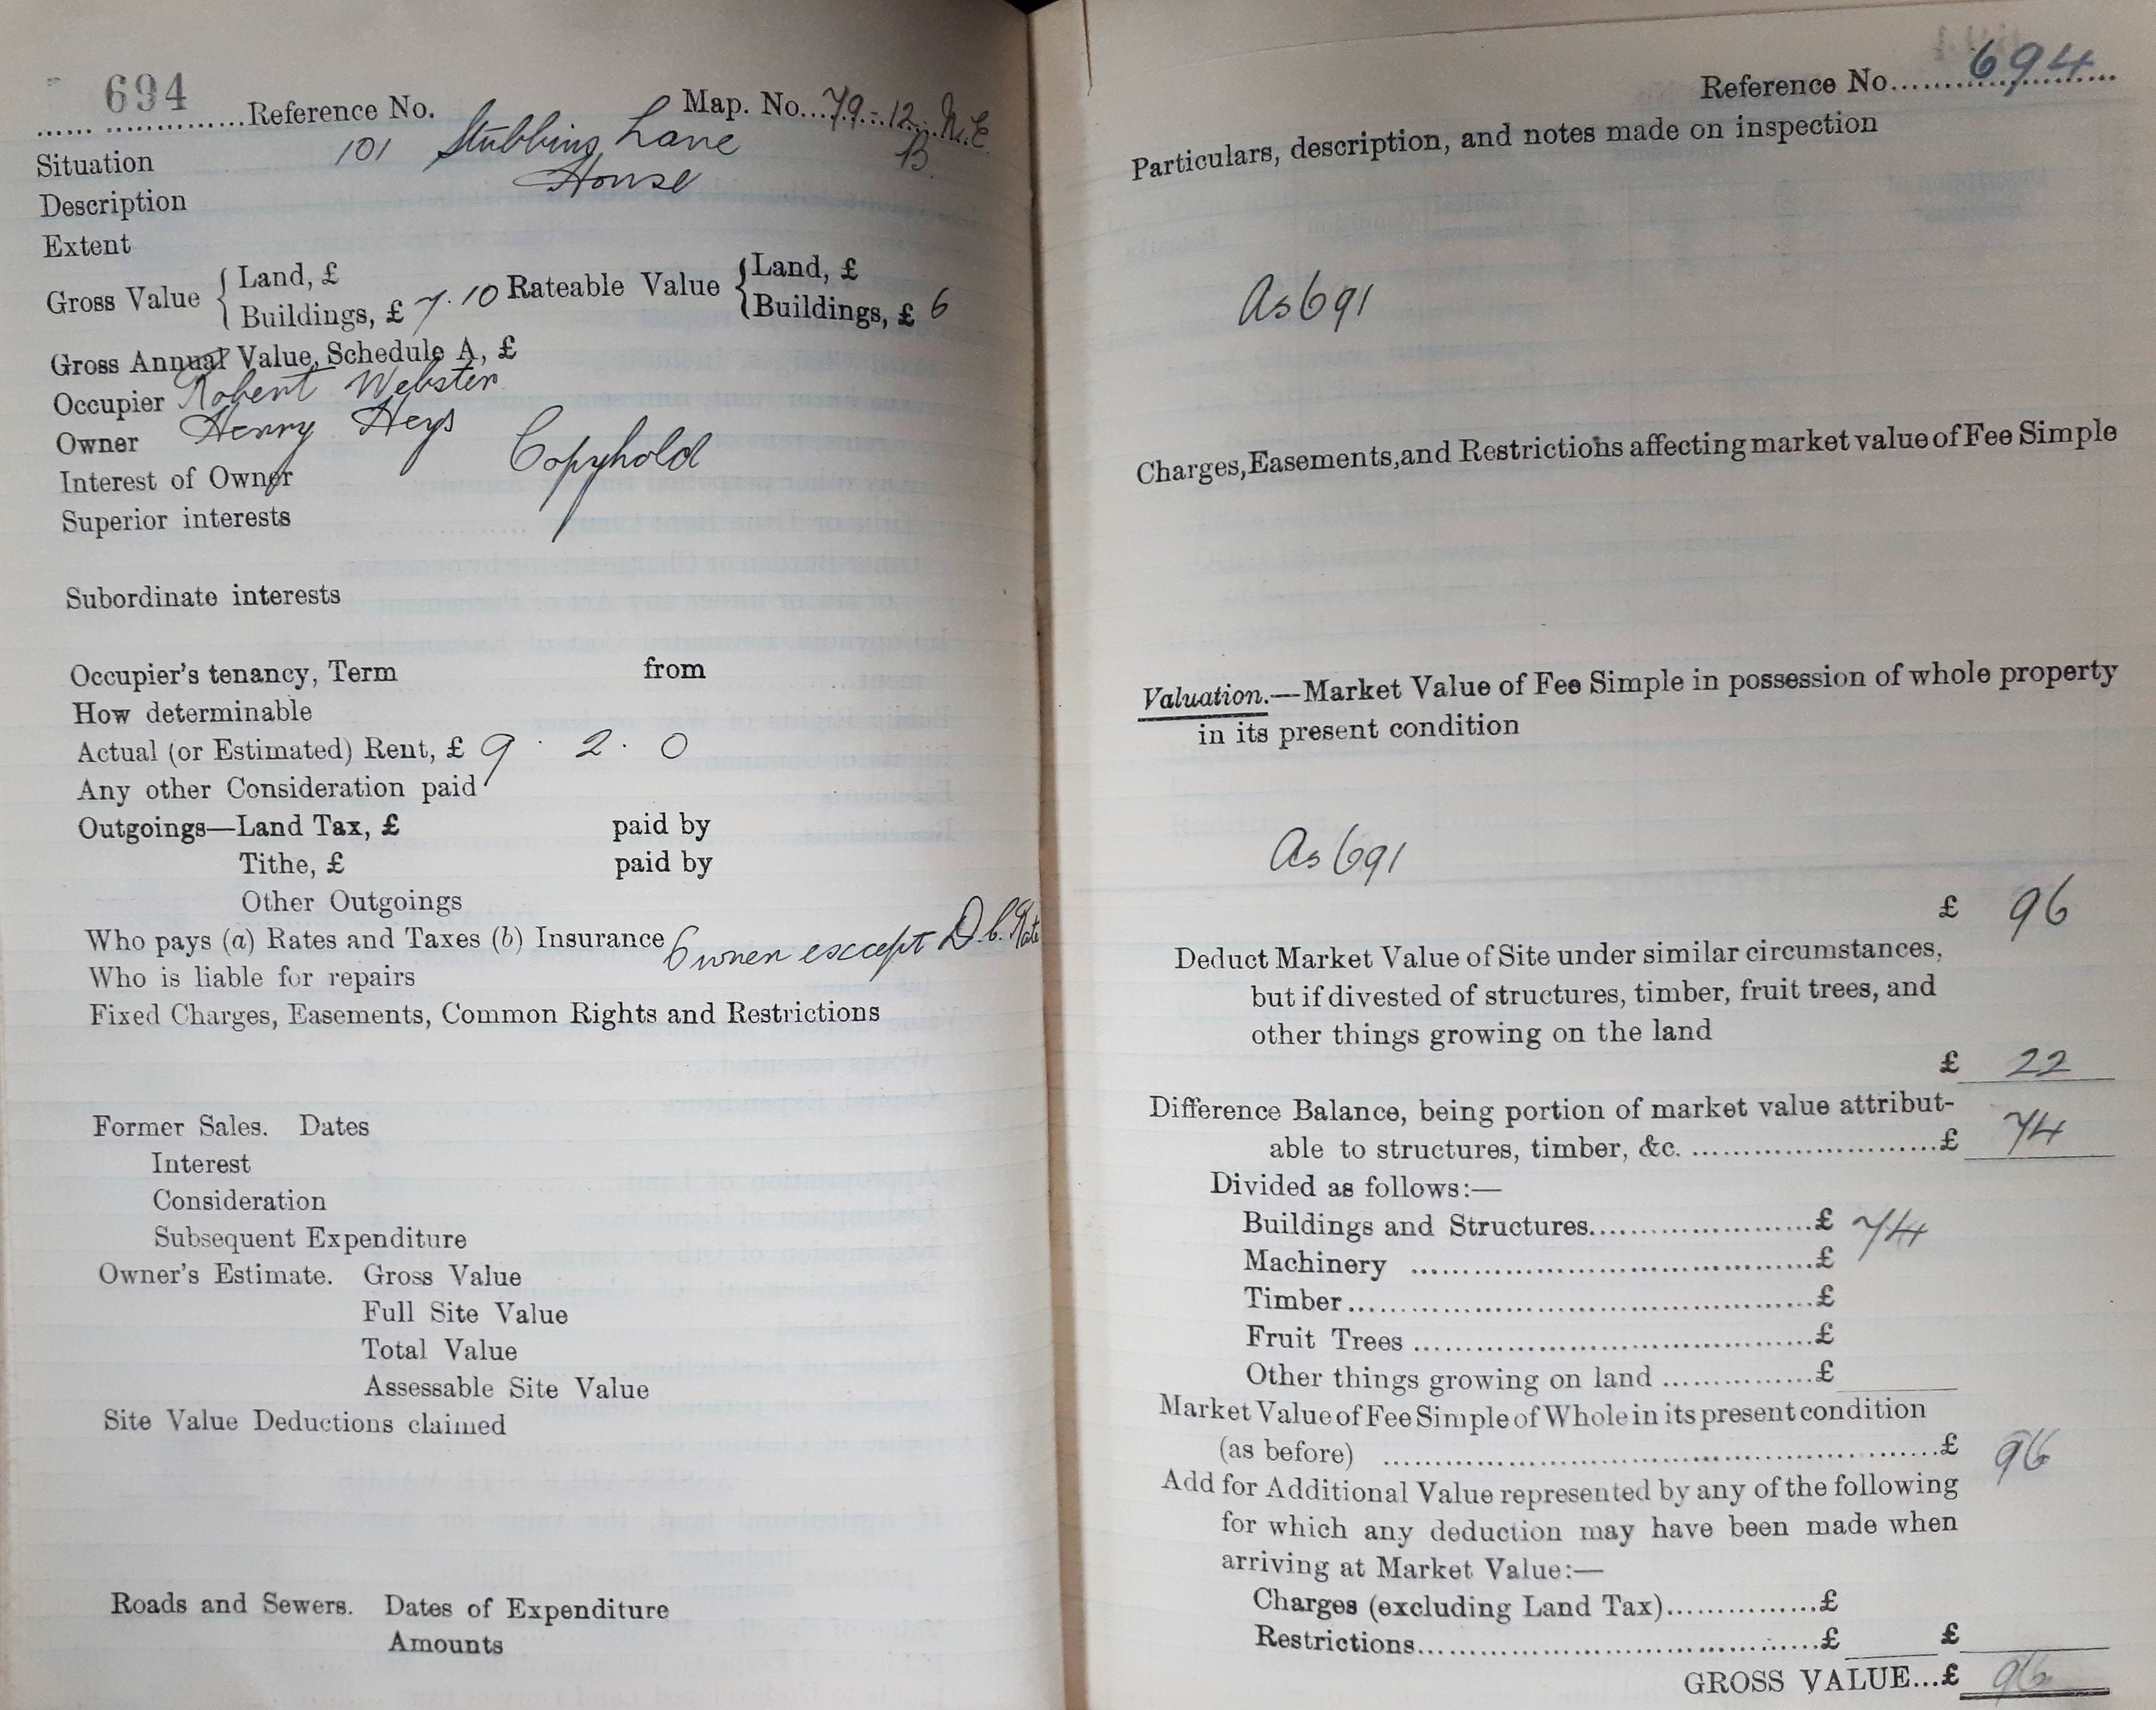 694
Reference No. Map. No. 79.12. N.E.
Situation 101 Stubbins Lane B.
Description House
Extent
Gross Value { Land, £
Buildings, £ 7.10 Rateable Value { Land, £
Buildings, £ 6
Gross Annual Value, Schedule A, £
Occupier Robert Webster
Owner Henry Heys
Interest of Owner Copyhold
Superior interests
Subordinate interests
Occupier's tenancy, Term from
How determinable
Actual (or Estimated) Rent, £ 9 . 2 . 0
Any other Consideration paid
Outgoings—Land Tax, £ paid by
Tithe, £ paid by
Other Outgoings
Who pays (a) Rates and Taxes (b) Insurance Owner except D.C. Rate
Who is liable for repairs
Fixed Charges, Easements, Common Rights and Restrictions
Former Sales. Dates
Interest
Consideration
Subsequent Expenditure
Owner's Estimate. Gross Value
Full Site Value
Total Value
Assessable Site Value
Site Value Deductions claimed
Roads and Sewers. Dates of Expenditure
Amounts
Reference No. 694
Particulars, description, and notes made on inspection
As 691
Charges, Easements, and Restrictions affecting market value of Fee Simple
Valuation.—Market Value of Fee Simple in possession of whole property
in its present condition
As 691
£ 96
Deduct Market Value of Site under similar circumstances,
but if divested of structures, timber, fruit trees, and
other things growing on the land
£ 22
Difference Balance, being portion of market value attribut-
able to structures, timber, &c. £ 74
Divided as follows:—
Buildings and Structures £ 74
Machinery £
Timber £
Fruit Trees £
Other things growing on land £
Market Value of Fee Simple of Whole in its present condition
(as before) £ 96
Add for Additional Value represented by any of the following
for which any deduction may have been made when
arriving at Market Value:—
Charges (excluding Land Tax) £
Restrictions £ £
GROSS VALUE...£ 96